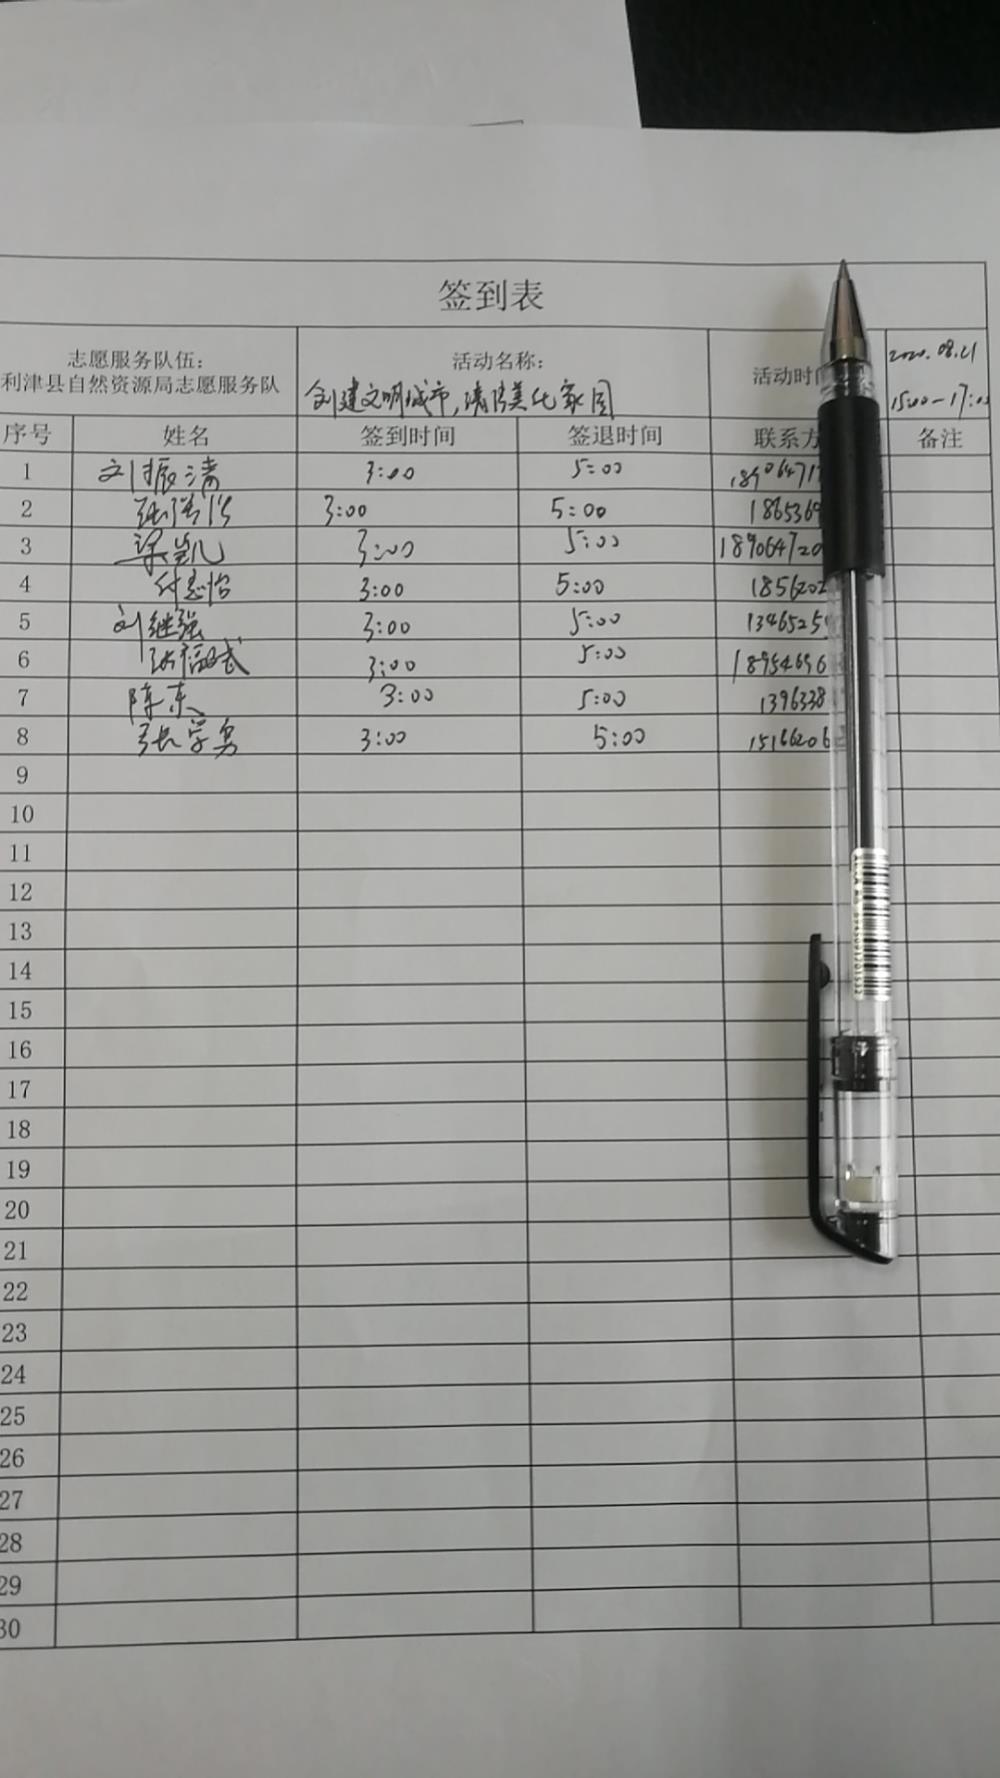 签到表
志愿服务队伍： 活动名称： 活动时 2020.08.21
利津县自然资源局志愿服务队 创建文明城市,清洁美化家园 15:00-17:0
序号 姓名 签到时间 签退时间 联系方 备注
1 刘振清 3:00 5:00 18906471
2 3:00 5:00 186536
3 梁凯 3:00 5:00 189064720
4 付志怡 3:00 5:00 1856202
5 刘继强 3:00 5:00 1346525
6 3:00 5:00 18954696
7 陈东 3:00 5:00 1396338
8 张学勇 3:00 5:00 15166206
9
10
11
12
13
14
15
16
17
18
19
20
21
22
23
24
25
26
27
28
29
30